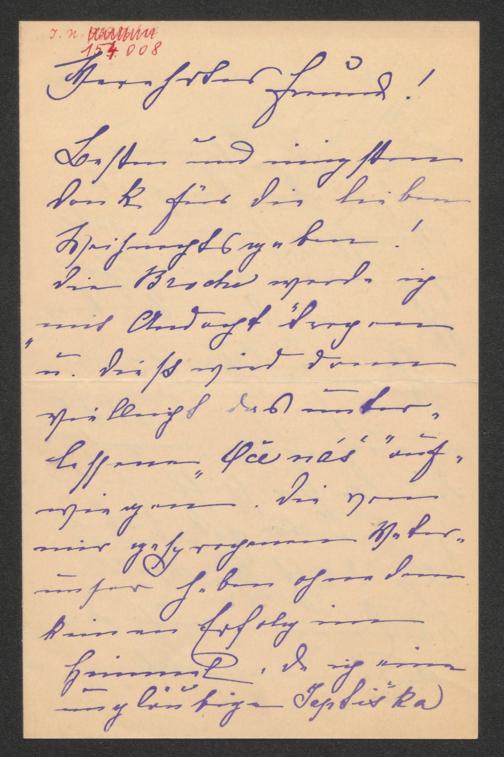 J. N.
154.008
Verehrter Freund!
Besten und innigsten
Dank für die lieben
Weihnachtsgaben!
Die Broche werde ich
"mit Andacht" tragen
u. dieß wird dann
vielleicht das unter-
lassene "Oče náš" auf-
wiegen. Die von
mir gesprochenen Vater-
unser haben ohnedem
keinen Erfolg im
Himmel, da ich eine
ungläubige Jeptiška